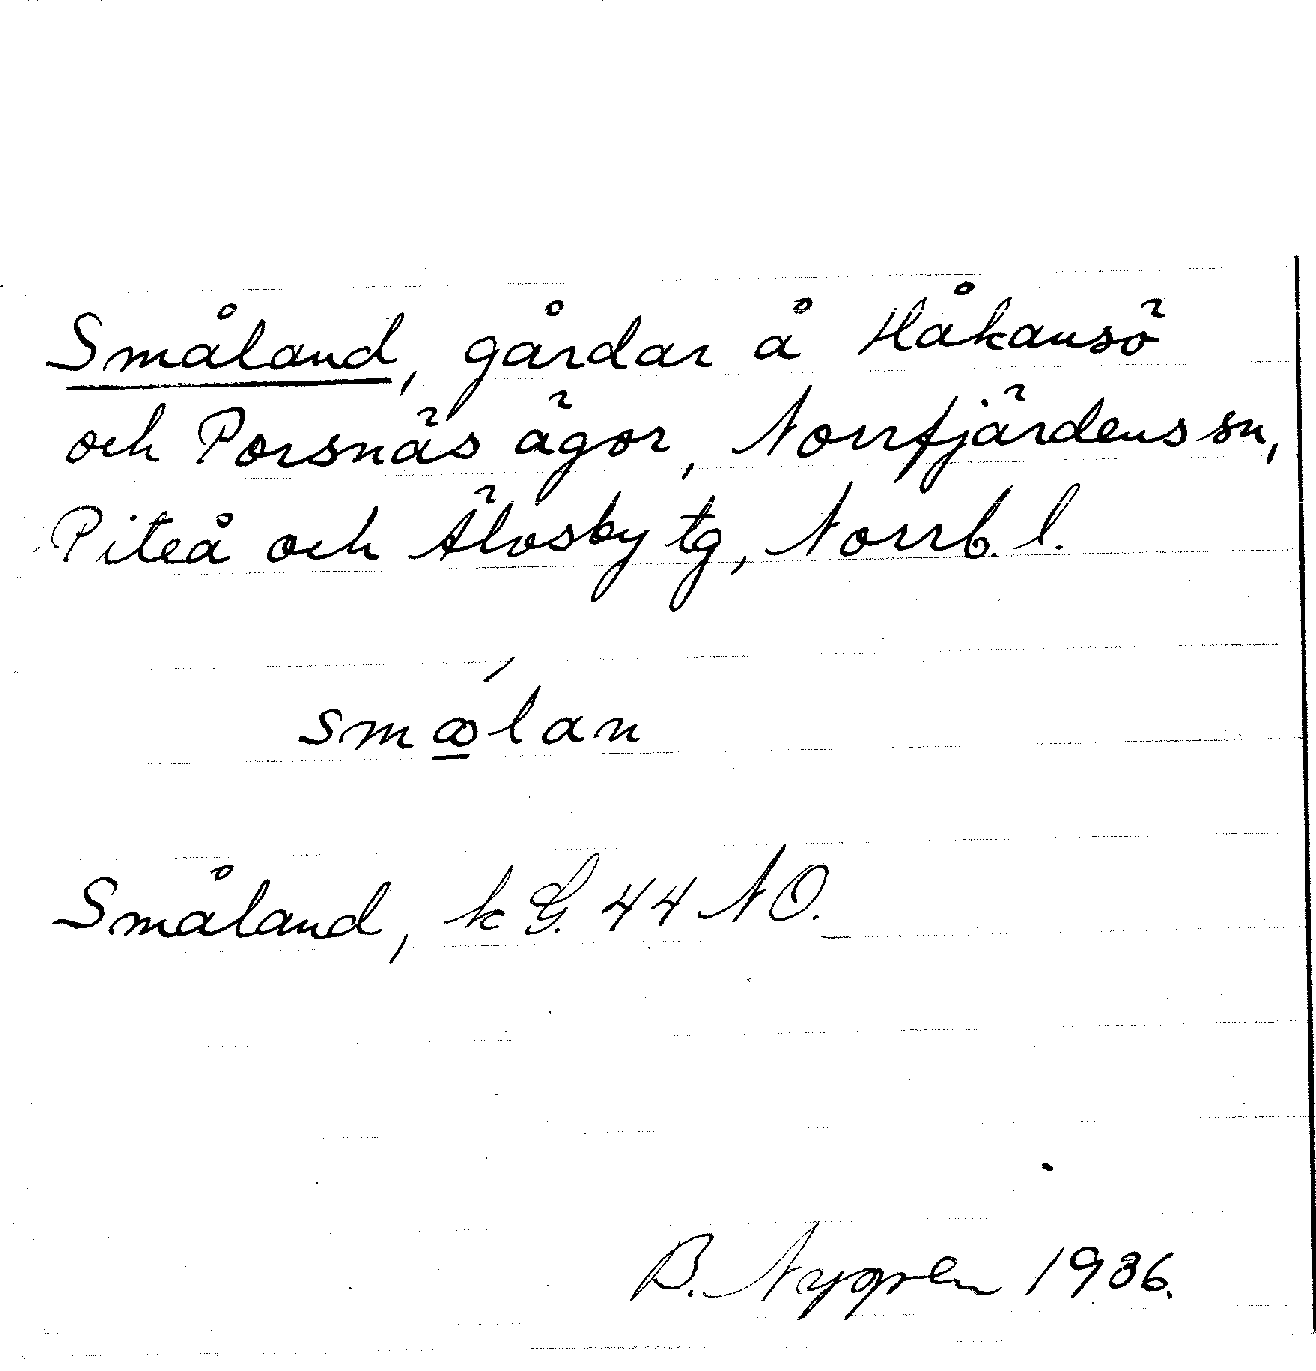 Småland, gårdar å Håkansö
och Porsnäs ägor, Norrfjärdens sn,
Piteå och Älvsby tg, Norrb. l.
smꝏ̲́lan
Småland, k G. 44 NO.
B. Nygren 1936.